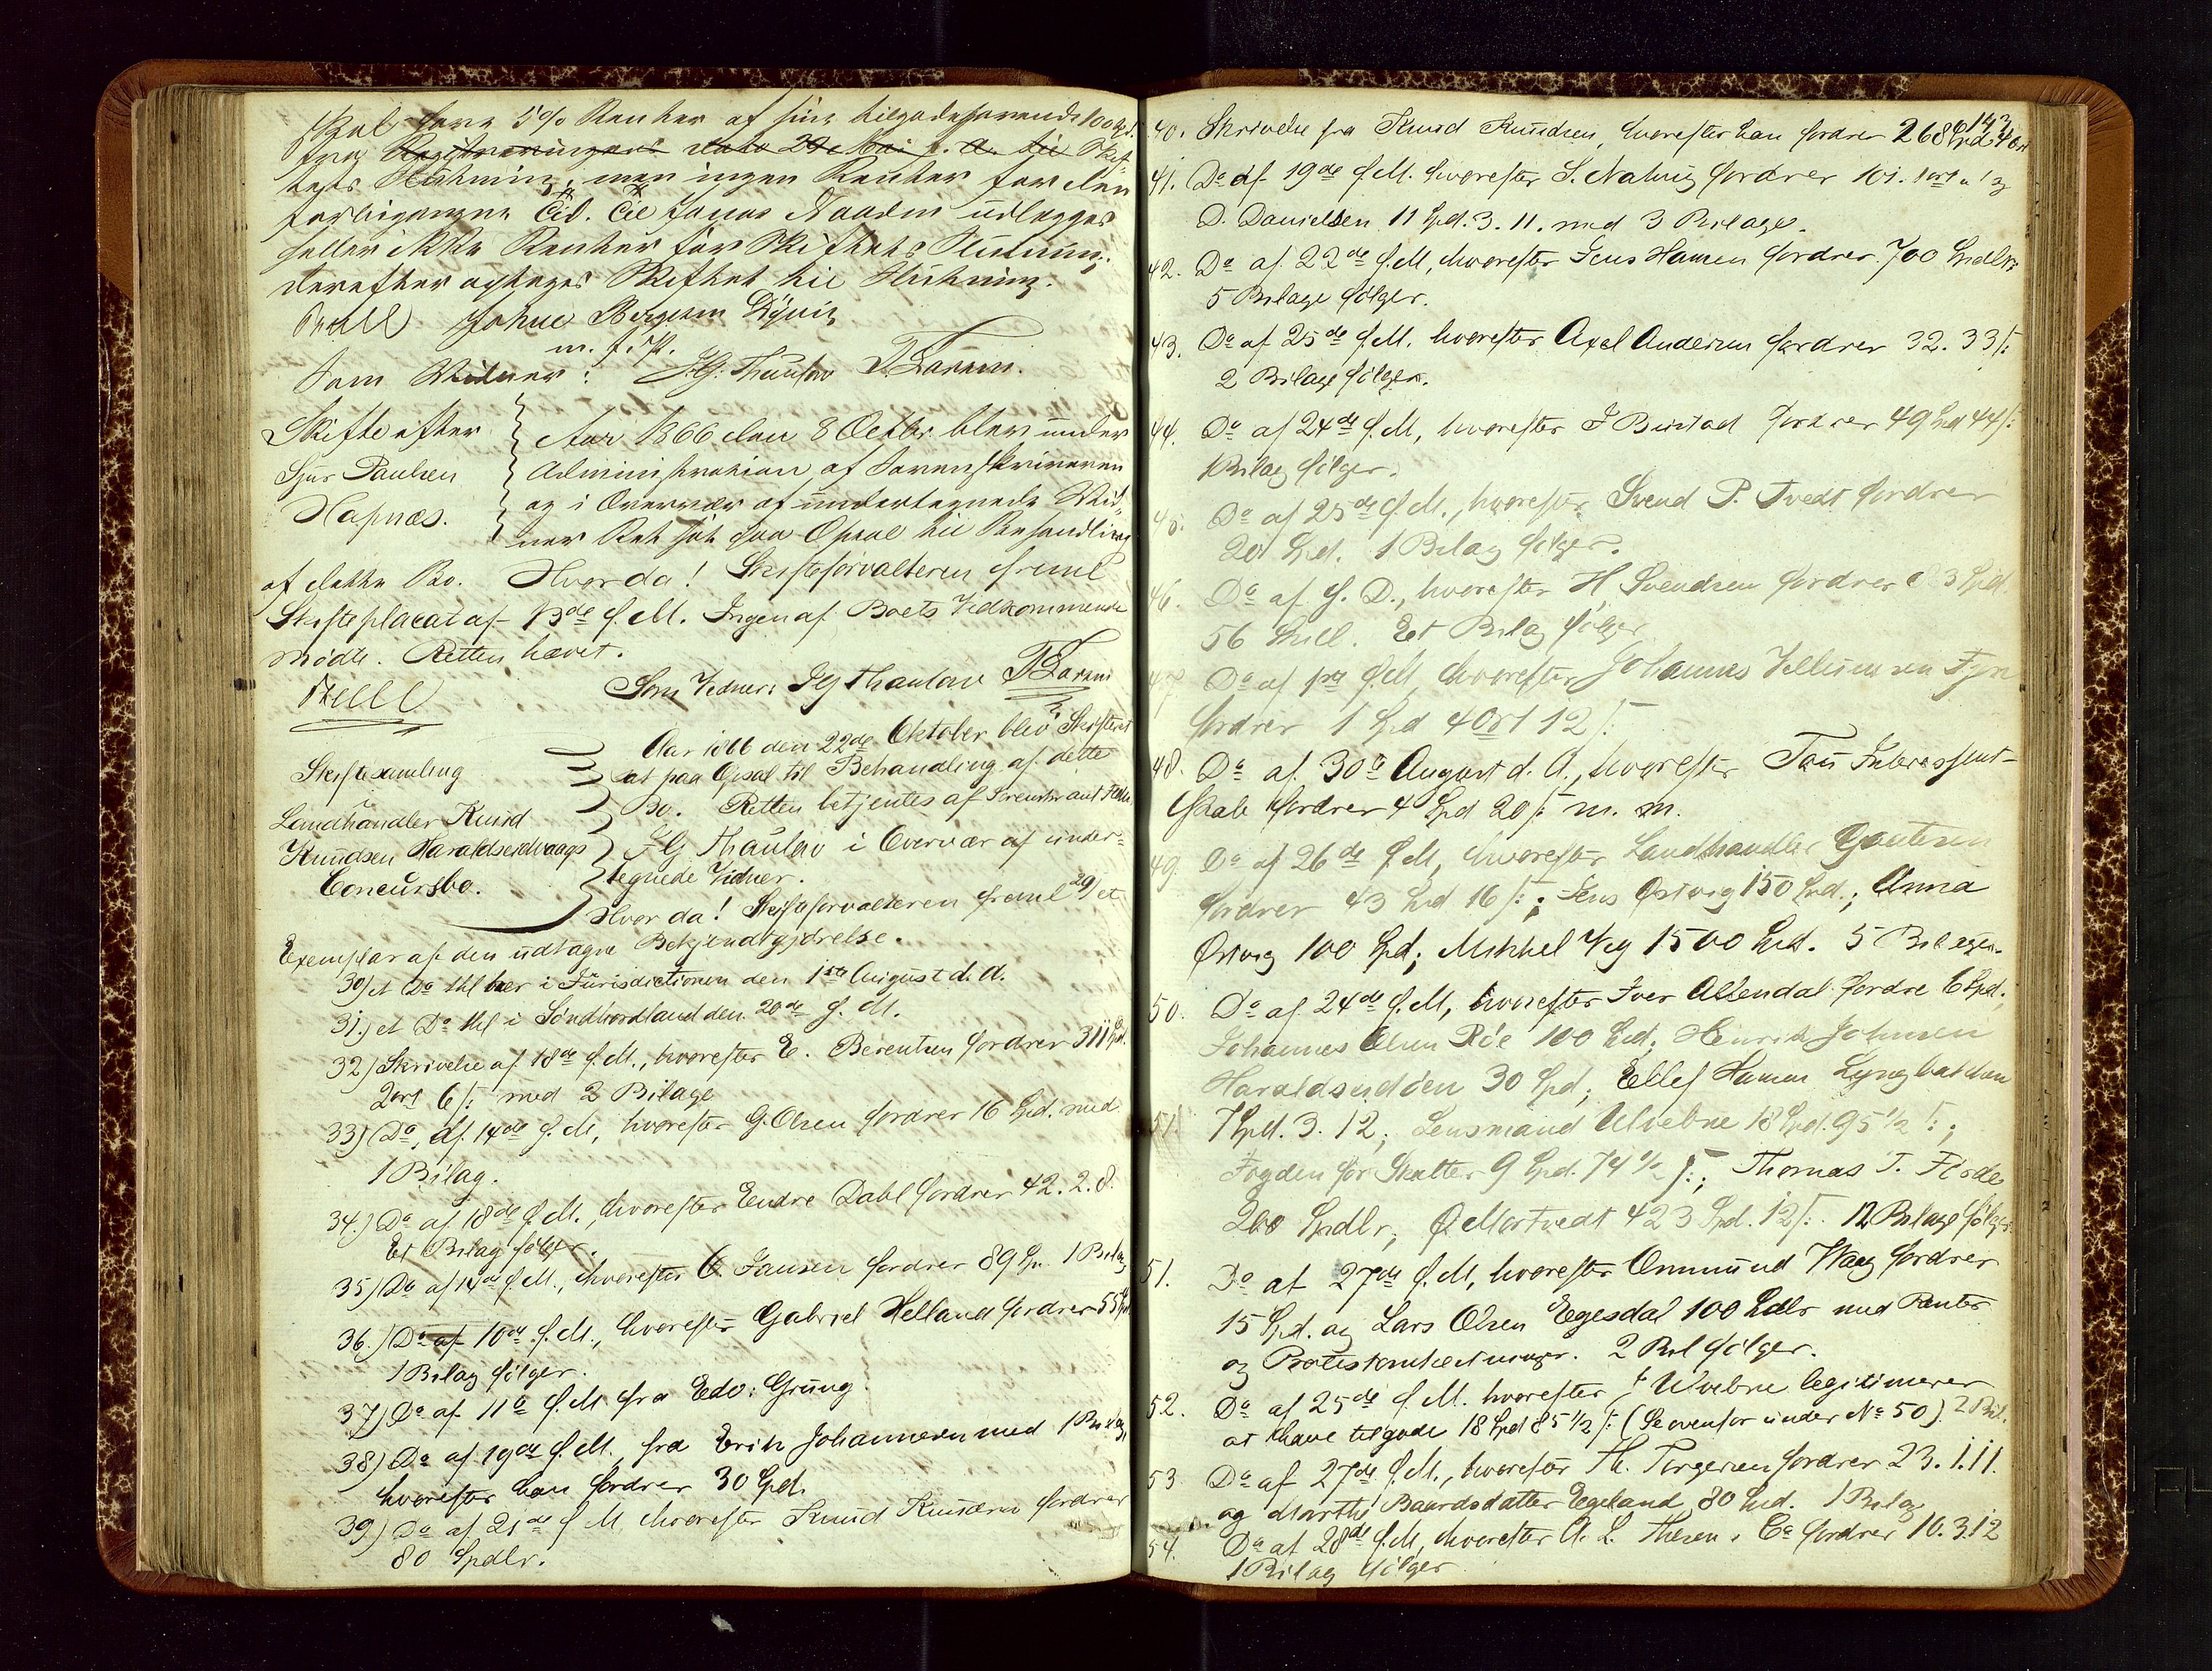 skal have 5% Renter af sine tilgodehavende 100 Spd.
fra Registreringens dato 29de Mai d. A. til Skif-
tets Slutning, men ingen Renter for den
forbigangne Tid. Til Jonas Naaden udlægges
heller ikke Renter før Skiftets Slutning.
Derefter optages Skiftet til Slutning.
Fzell Johne Bergesen
m. f. P.
Som Vidner: J.G. Thaulow T. Larsen.
Skifte efter
Sjur Paulsen
Hapnæs.
Aar 1866 den 8 Octbr. blev under
Administration af Sorenskriveren
og i Overvær af undertegnede Vid-
ner Ret sat paa Opsal til Behandling
af dette Bo. Hvor da! Skifteforvalteren freml
Skifteplacat af 13de f. M. Ingen af Boets Vedkommende
mødte. Retten hævet.
Fzell Som Vidner: J G Thaulow T Larsen
Skiftesamling
Landhandler Knud
Knudsen Haraldseidvaags
Concursbo.
Aar 1866 den 22de Oktober blev Skifteret
sat paa Opsal til Behandling af dette
Bo. Retten betjentes af
J G Thaulow i Overvær af under-
tegnede Vidner.
Hvor da! Skifteforvalteren freml 29) et
Exemplar af den udtagne Bekjendtgjørelse.
30) et Do thl her i Jurisdictionen den 1ste August d. A.
31.) et Do thl i Søndhordland den 20de f. M.
32) Skrivelse af 18de f. M., hvorefter E. Berentsen fordrer 311 Spd.
2 ort 6 ß med 2 Bilage
33) Do, af 14de f. M, hvorefter G. Olsen fordrer 16 Spd. med
1 Bilag.
34.) Do af 18de f. M., hvorefter Endre Dahl fordrer 42. 2. 8.
Et Bilag følger.
35) Do af 14de f. M., hvorefter O. Jansen fordrer 89 Sp. 1 Bilag
36.) Do af 10de f. M., hvorefter Gabriel Helland fordrer 55 Spd
1 Bilag følger.
37) Do af 11te f. M. fra Edv. Grung.
38) Do af 19de f. M. fra Erik Johannesen med 1 Bilag,
hvorefter han fordrer 30 Spd.
39) Do af 21de f M hvorefter Knud Knudsen fordrer
80 Spdlr.
143
40. Skrivelse fra Knud Knudsen, hvorefter han fordrer 268 Spd 4 ort
41. Do af 19de f. M. hvorefter S. Natvig fordrer 101. 1 ort og
D. Danielsen 11 Spd. 3. 11. med 3 Bilage.
42. Do af 22de f. M, hvorefter Jens Hansen fordrer 700 Spdlr:
5 Bilage følger.
43. Do af 25de f. M. hvorefter Axel Andersen fordrer 32. 33 ß:
2 Bilage følger.
44. Do af 24de f. M, hvorefter J Burstad fordrer 49 Spd 44 ß:
1 Bilag følger.
45. Do af 25de f. M., hvorefter Svend P. Tvedt fordrer
20 Spd. 1 Bilag følger.
46. Do af s. D., hvorefter H Svendsen fordrer 3 Spd.
56 Skill. Et Bilag følger
47. Do af f. M, hvorefter Johannes
fordrer 1 Spd 4 Ort 12 ß
48. Do af 30te August d. A., hvorefter Tou Interessent-
skab fordrer 4 Spd 20 ß m. m.
49. Do af 26de f. M, hvorefter Landhandler Gautesen
fordrer 43 Spd 16 ß; Jens Østvig 150 Spd.; Anna
Østvig 100 Spd; Mikkel Veg 1500 Spd. 5 Bilage.
50. Do af 24de f. M, hvorefter Iver Allendal fordre 6 Spd;
Johannes Olsen Røe 100 Spd; Henrik Johnsen
Haraldseid den 30 Spd; Ellef Hansen
7 Spd. 3. 12; Lensmand Ulvebne 18 Spd. 95 1/2 ß;
Fogden for Skatter 9 Spd. 74 1/2 ß; Thomas T. Førde
200 Spdlr; O. Mortvedt 423 Spd. 12 ß. 12 Bilage følger.
51. Do af 27de f. M, hvorefter Ommund Waag fordrer
15 Spd. og Lars Olsen Egesdal 100 Spdlr med Renter
og Protestomkostninger. 2 Bil følger.
52. Do af 25de f M. hvorefter Ulvebne legitimerer
at have tilgode 18 Spd 85 1/2 ß (Se ovenfor under No 50). 2 Bil.
53 Do af 27de f. M., hvorefter Th. Torgersen fordrer 23. 1. 11.
og Marthe Baardsdatter Egeland 80 Spd. 1 Bilag
54. Do af 28de f. M, hvorefter A. L. Thesen & Co fordrer 10. 3. 12
1 Bilag følger